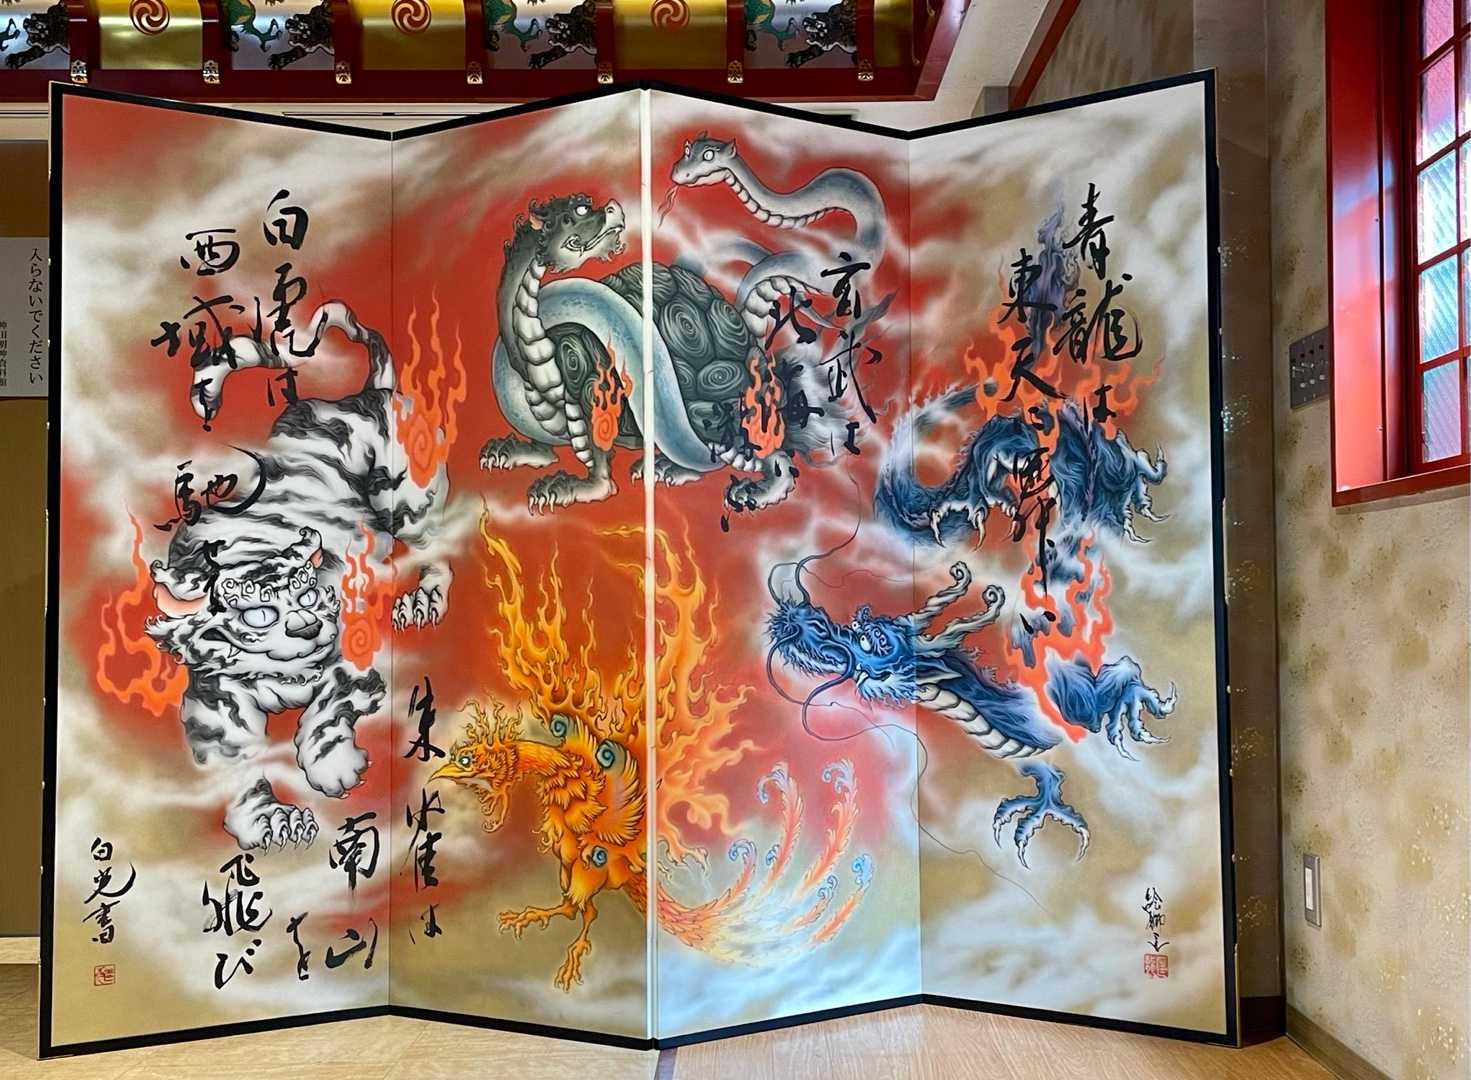 青龍は
東天に
玄武は
北海に
朱雀は
南山を
飛び
白虎は
西域を
馳せ
白光書
入らないでください
神田明神資料館